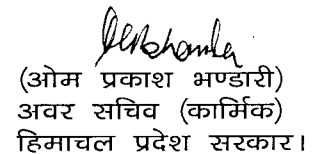 (ओम प्रकाश भण्डारी)
अवर सचिव (कार्मिक)
हिमाचल प्रदेश सरकार।